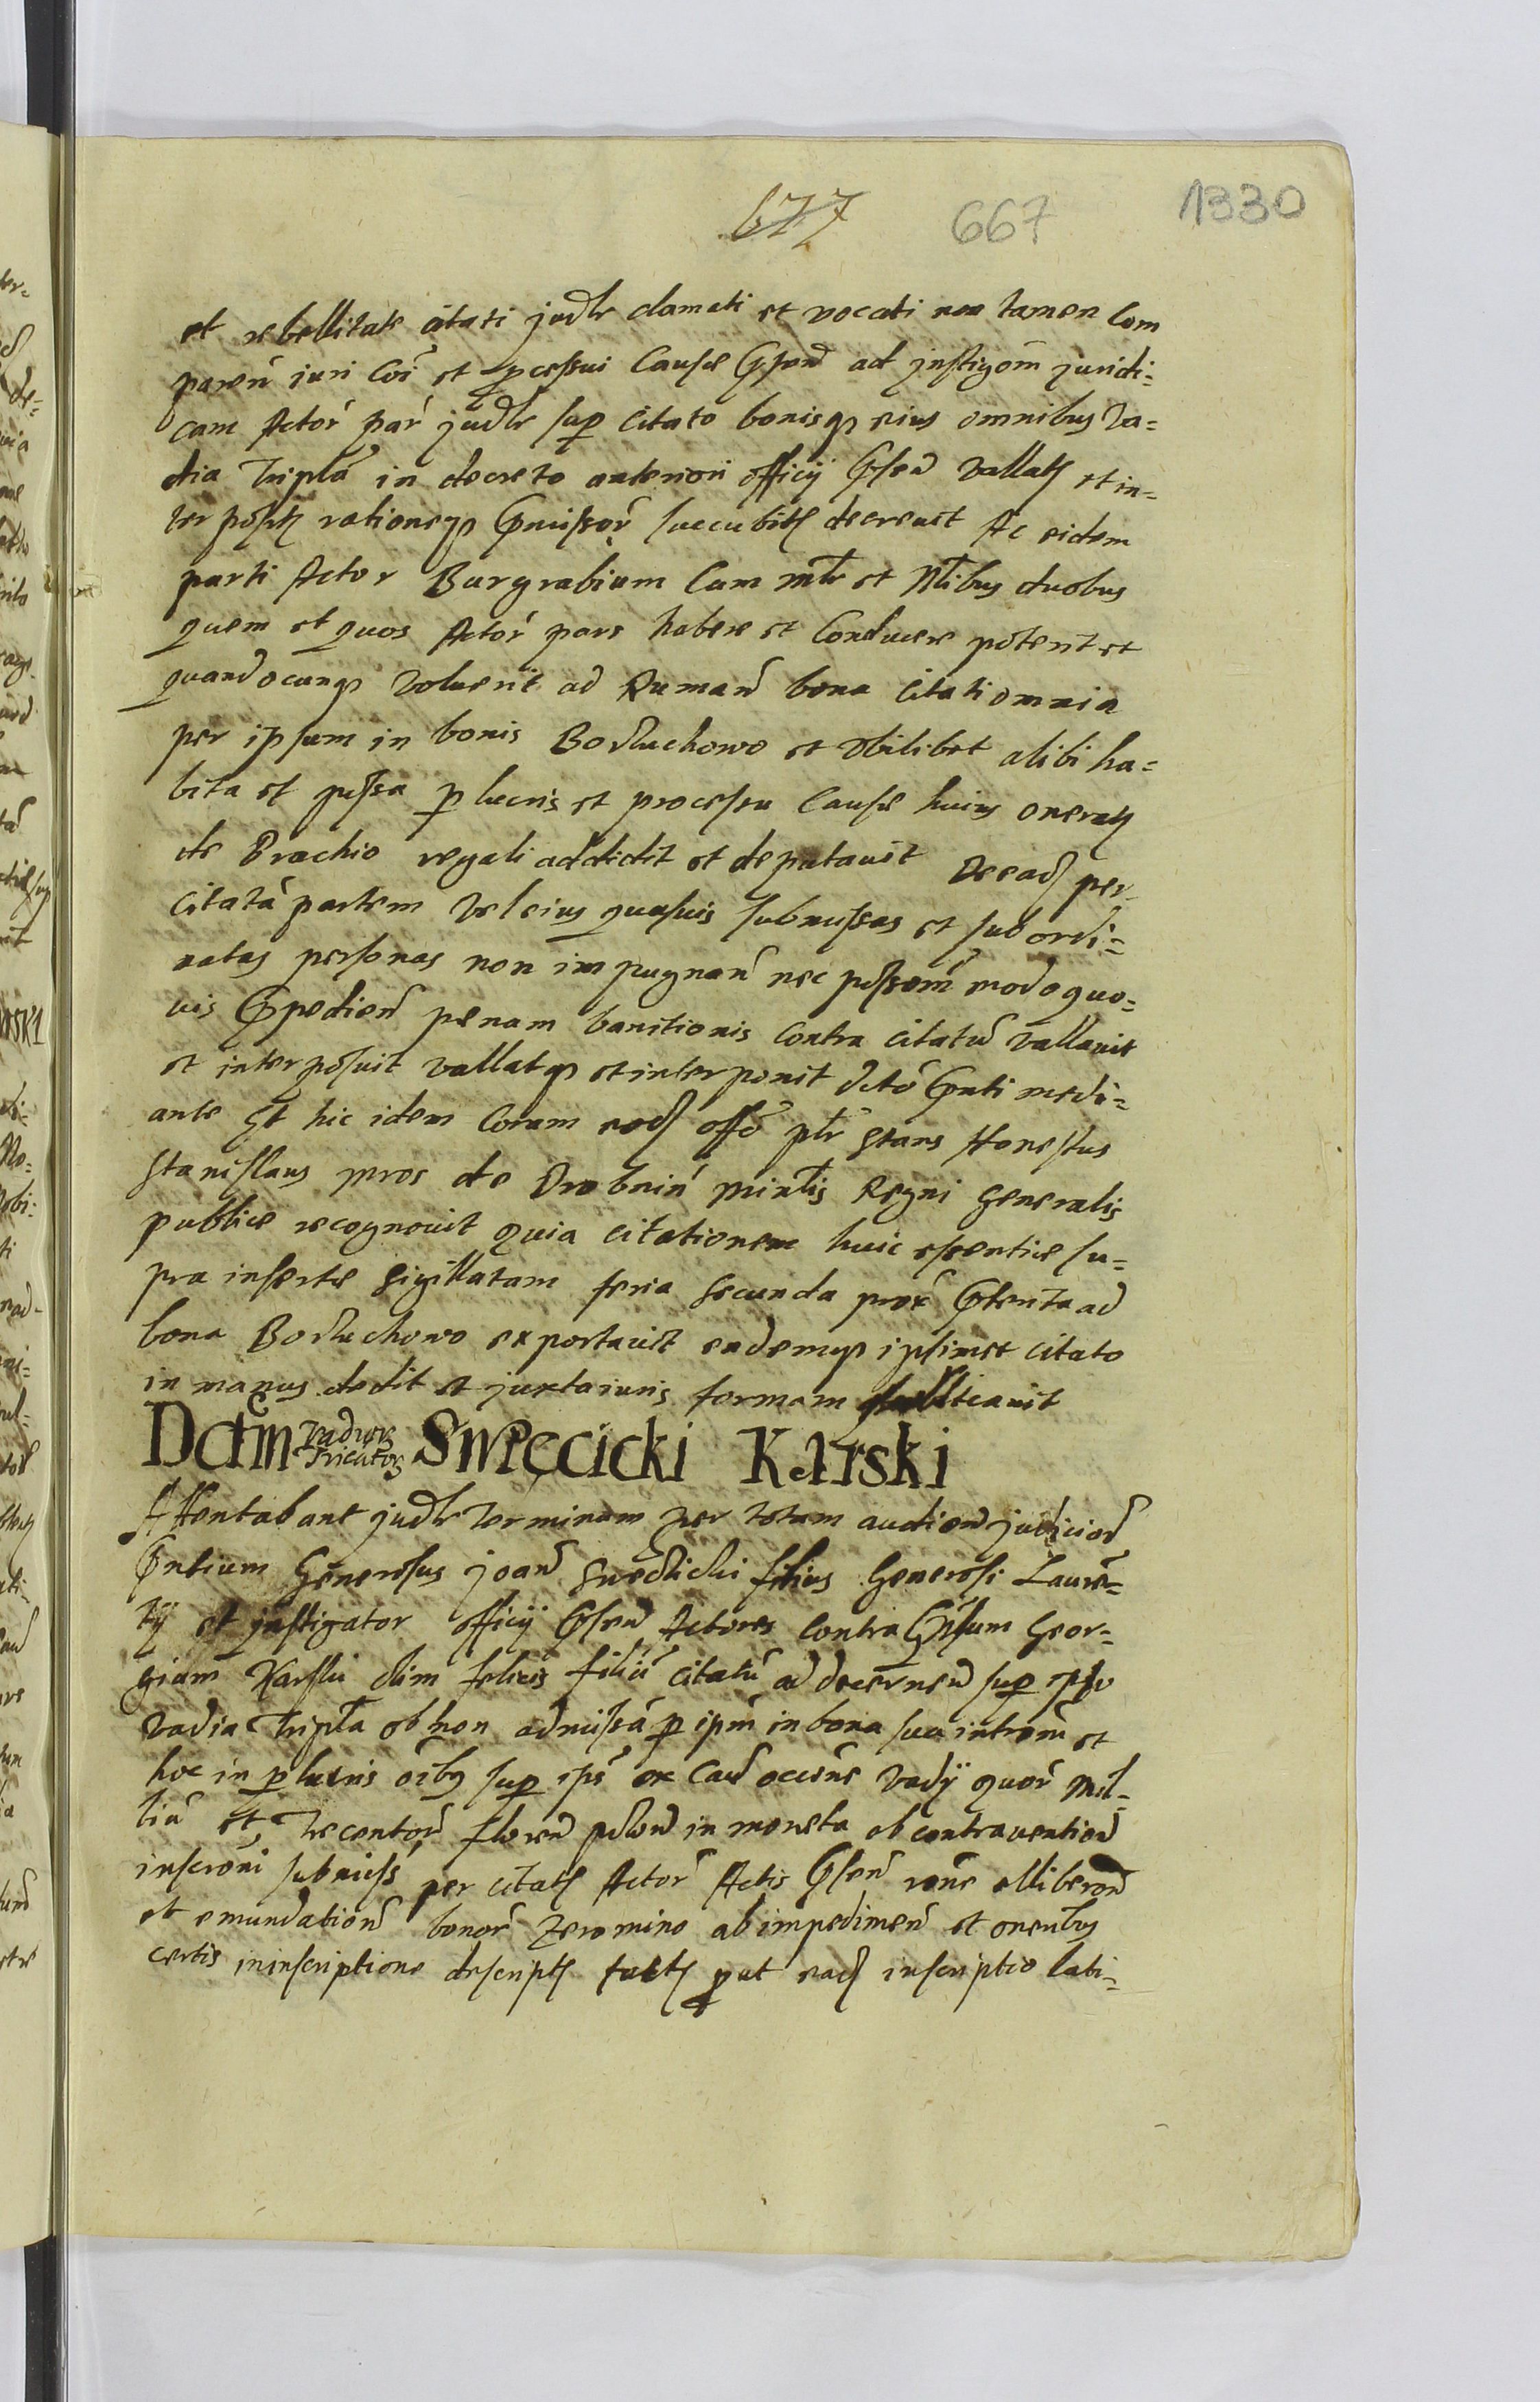 677 667 1330
et rebellitate citati judlr clamati et vocati non tamen com
paren iuri coi et pcessui causæ psend ad jnstigom juridi=
cam Actor par judlr sup citato bonisq eius omnibus va=
dia tripla in decreto anteriori officij psend vallatt et in=
ter positt rationeq pmissor succubitt decrevit Ac eidem
parti Actor Burgrabium cum mlr et Nlibus duobus
quem et quos Actor pars habere et conducere poterit et
quandocunq voluerit ad Ruman bona citati omnia
per ipsum in bonis Bodluchowo et vbilibet alibi ha=
bita et possa p lucris et processu causæ huius oneratt
de Brachio regali addidit et deputavit Deead per
citata partem vel eius quasuis submissas et subordi=
natas personas non impugnan nec possom modo quo=
uis Expedien penam banitionis contra citatu vallavit
et interposuit vallatq et interponit dcto pnti medi=
ante Et hic idem coram eod offo plr stans Honestus
Stanislaus mros de Drobnin minlis Regni generalis
publice recognouit quia citationem huic essentiæ su=
pra insertæ sigillatam feria secunda prox pterita ad
bona Bodluchowo exportauit eademq ipsimet citato
in manus dedit et juxta iuris formam publicauit
Dcm vadior tricator Swięcicki Karski
Attentabant judlr terminum per totam audien judicior
pntium Generosus joan Swecicki filius Generosi Lauren=
tij et jnstigator officij psend Actores contra Gnsum Geor=
gium Karski olim felicis filiu citatu ad decernend sup ipso
vadia tripla ob non admissa p ipm in bona sua introm et
hoc in p lucris oibq sup ipo ex cau occone vadij quor mil=
liu et trecentor floren polon in moneta ob contravention
inscroni submiss per citatt Actor Actis psen rone elliberon
et emundation bonor Zeromino ab impedimen et oneribus
certis in inscriptione descriptt factt p ut ead inscriptio lati=